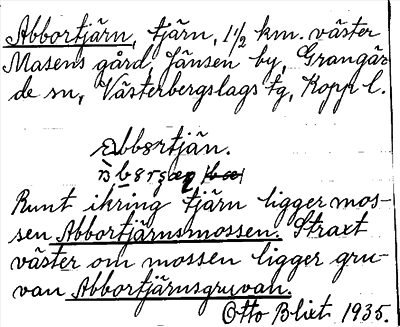 Abbortjärn, tjärn, 1 1/2 km. väster
Masens gård, Jänsen by, Grangär-
de sn, Västerbergslags tg, Kopp l.
abbortjän.
Runt ikring tjärn ligger mos-
sen Abbortjärnsmossen. Straxt
väster om mossen ligger gru-
van Abbortjärnsgruvan.
Otto Blixt 1935.